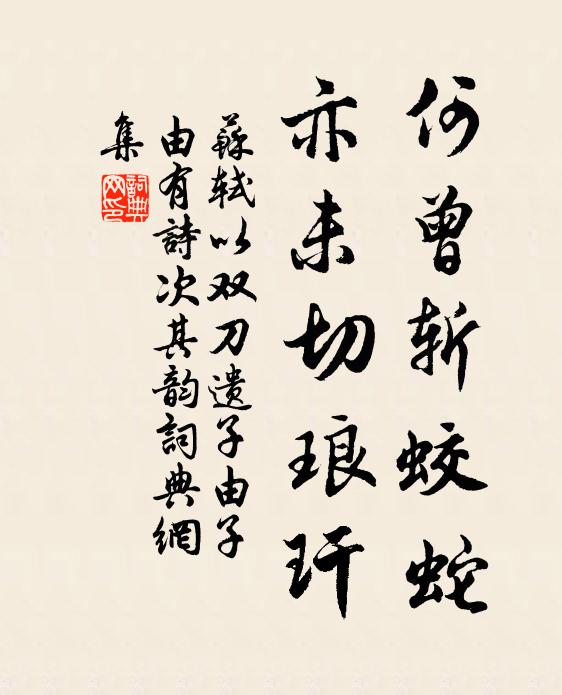 何曾斩蛟蛇
亦未切琅玕
蘇轼以双刀遗子由子
由有詩次其韵詞典網
集
詞典
网印